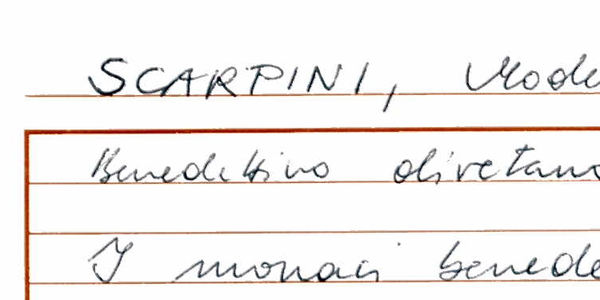 SCARPINI, Mode
Benedettino olivetano
I monaci benede